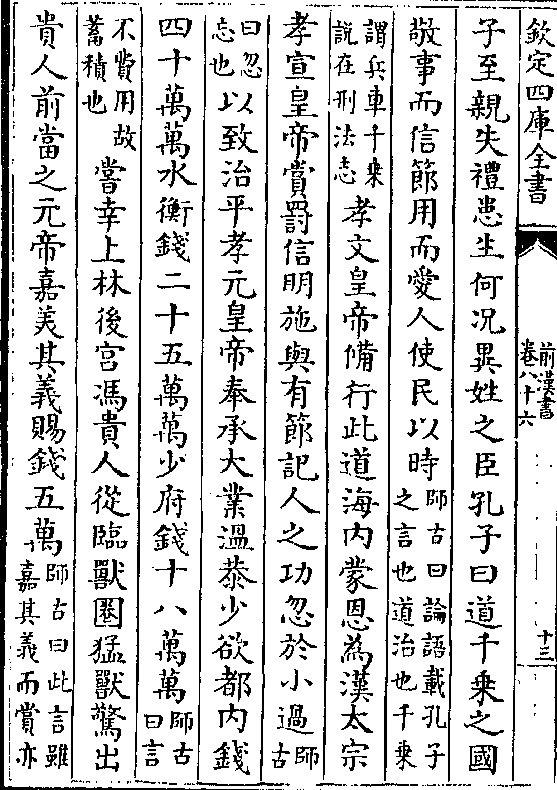 欽定四庫全書
前漢書
卷八十六
十三
子至親失禮患生何況異姓之臣孔子曰道千乘之國
敬事而信節用而愛人使民以時師古曰論語載孔子
之言也道治也千乘
謂兵車千乘
說在刑法志孝文皇帝備行此道海內蒙恩為漢太宗
孝宣皇帝賞罰信明施與有節記人之功忽於小過師古
曰忽
忘也以致治平孝元皇帝奉承大業溫恭少欲都內錢
四十萬萬水衡錢二十五萬萬少府錢十八萬萬師古
曰言
不費用故
蓄積也嘗幸上林後宮馮貴人從臨獸圈猛獸驚出
貴人前當之元帝嘉美其義賜錢五萬師古曰此言雖
嘉其義而賞亦